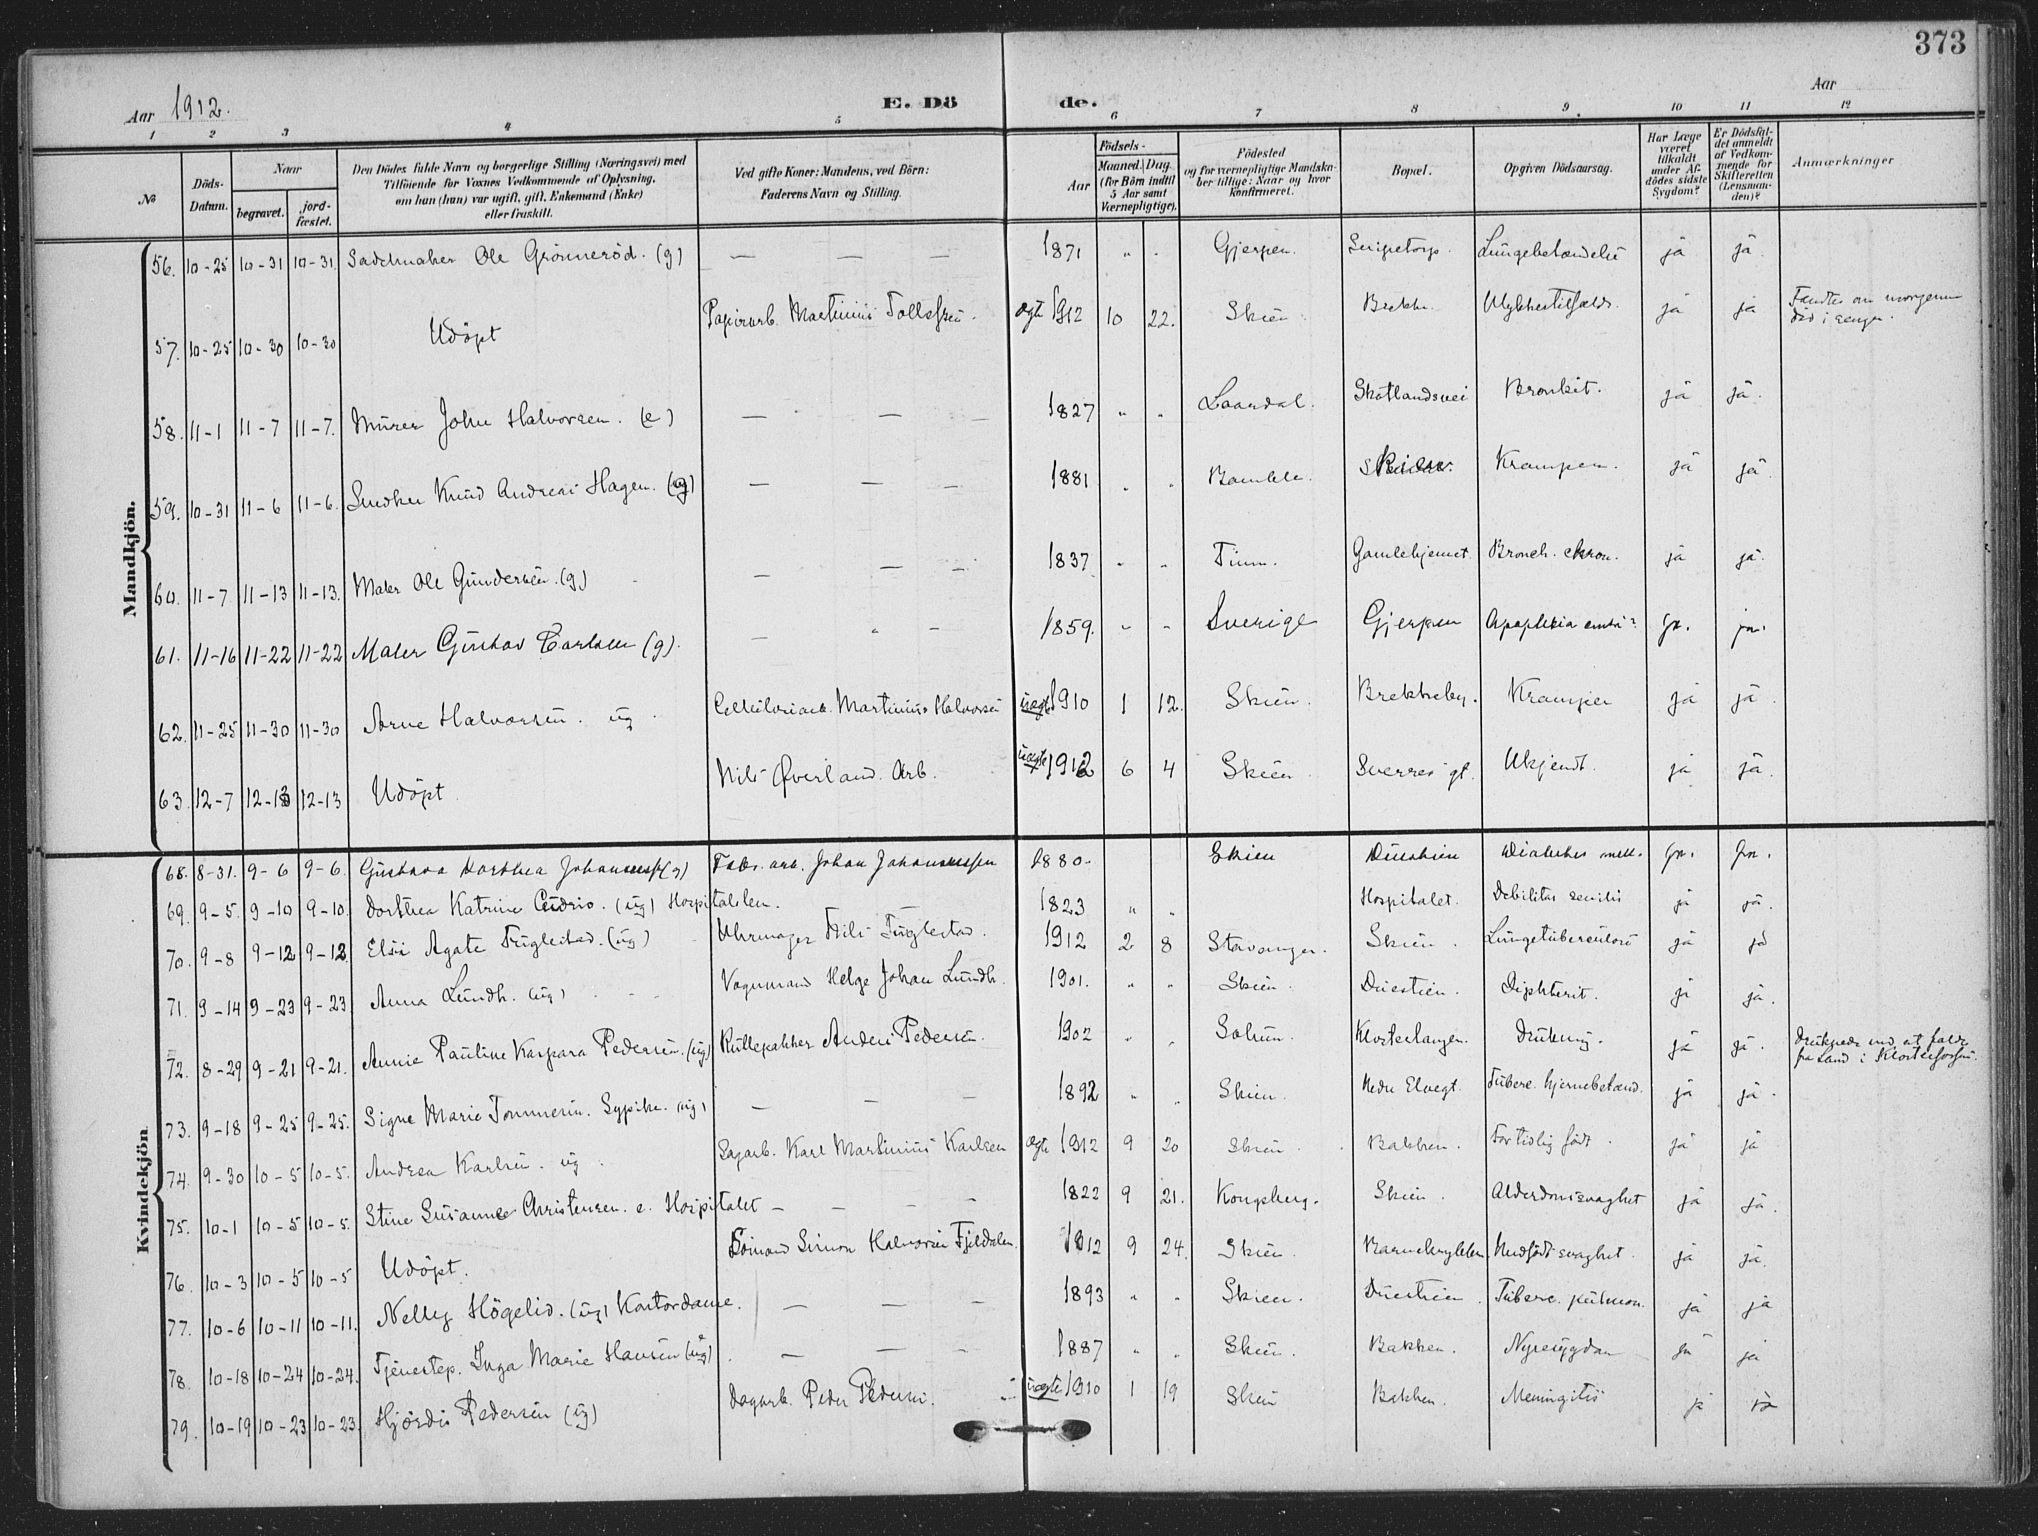 373
Aar 1912.
E. Dö de.
Aar
1 2 3 4 5 6 7 8 9 10 11 12
№
Döds-Datum.
Naar
begravet.
jord-fæstet.
Den Dödes fulde Navn og borgerlige Stilling (Næringsvei) med Tilföiende for Voxnes Vedkommende af Oplysning, om han (hun) var ugift, gift, Enkemand (Enke) eller fraskilt.
Ved gifte Koner: Mandens, ved Börn: Faderens Navn og Stilling.
Födsels-
Aar
Maaned. Dag.
(for Börn indtil 5 Aar samt Værnepligtige).
Födested og for værnepligtige Mandskaber tillige: Naar og hvor konfirmeret.
Bopæl.
Opgiven Dödsaarsag.
Har Læge været tilkaldt under Afdödes sidste Sygdom?
Er Dödsfaldet anmeldt af Vedkommende for Skifteretten (Lensmanden)?
Anmærkninger
Mandkjön.
56. 10-25 10-31 10-31 Sadelmaker Ole Grönneröd. (g) — — — 1871 " " Gjerpen. Snipetorp. Lungebetændelse ja ja
57. 10-25 10-30 10-30 Udöpt Papirarb. Martinius Tollefsen. ægte 1912 10 22. Skien Brekke. Ulykkestilfælde. ja ja Fandtes om morgenen död i sengen.
58. 11-1 11-7 11-7. Murer John Halvorsen. (e) — — — 1827 " " Laardal. Skotlandsvei Bronkit. ja ja.
59. 10-31 11-6 11-6. Snedker Knud Andreas Hagen. (ug) — — — 1881 " " Bamble. Krampen. ja ja
60. 11-7. 11-13 11-13. Maler Ole Gundersen. (g) — — — 1837 " " Tinn. Gamlehjemmet Bronch. chron. ja ja.
61. 11-16 11-22 11-22 Maler Gustav Carlsen (g). — " — 1859. " " Sverige Gjerpen Apoplexia ja. ja.
62. 11-25 11-30 11-30 Arne Halvorsen. ug. Cellulosearb. Martinius Halvorsen uægte 1910 1 12. Skien. Brekkeby. Krampe ja ja
63. 12-7 12-13 12-13 Udöpt Nils Øverland. Arb. uægte 1912 6 4 Skien Sverres gt. Ukjendt. ja ja.
Kvindekjön
68. 8-31. 9-6 9-6. Gustava Dorthea Johannessen (g) Fabr. arb. Johan Johannessen 1880. Skien Duestien Diabetes mell. ja. ja.
69. 9-5. 9-10 9-10. Dorthea Katrine (ug) Hospitalslem. 1823 " " Hospitalet. Debilitas senilis ja ja.
70. 9-8 9-12 9-12. Elsa Agate Fuglestad. (ug) Uhrmager Nils Fuglestad. 1912 2 8 Stavanger. Skien. Lungetuberculose ja ja
71. 9-14 9-23 9-23 Anna Lundh. (ug) Vognmand Helge Johan Lundh. 1901. " " Skien. Duestien. Diphterit. ja ja.
72. 8-29 9-21 9-21. Annie Pauline Kaspara Pedersen. (ug) Rullepakker Anders Pedersen. 1902 " " Solum. Klostertangen. Drukning. ja ja. Druknede ved at falde fra Land i Klosterfossen.
73. 9-18 9-25 9-25. Signe Marie Tommesen. Sypike. (ug) — — — 1892 " " Skien. Nedre Elvegt. Tuberc. hjernebetænd. ja ja.
74. 9-30 10-5 10-5. Andrea Karlsen. ug. Sagarb. Karl Martinius Karlsen ægte 1912 9 20 Skien. Bakken. For tidlig födt. ja ja
75. 10-1 10-5 10-5. Stine Susanne Christensen. e. Hospitalet — — — 1822 9 21. Kongsberg. Skien. Alderdomssvaghet ja ja.
76. 10-3 10-5 10-5 Udöpt. Sömand Simon Halvorsen Fjeldalen. 1912 9 24. Skien. Medfödt svaghet. ja ja.
77. 10-6 10-11 10-11. Nelly Högelid. (ug) Kontordame. — — — 1893 " " Skien. Duestien. Tuberc. pulmon. ja ja
78. 10-18 10-24 10-24. Tjenestep. Inga Marie Hansen (ug). — — — 1887 " " Skien. Bakken. Nyresygdom ja ja
79. 10-19 10-23 10-23. Hjördis Pedersen (ug) Dagarb. Peder Pedersen. uægte 1910 1 19 Skien Bakken. Meningitis ja ja